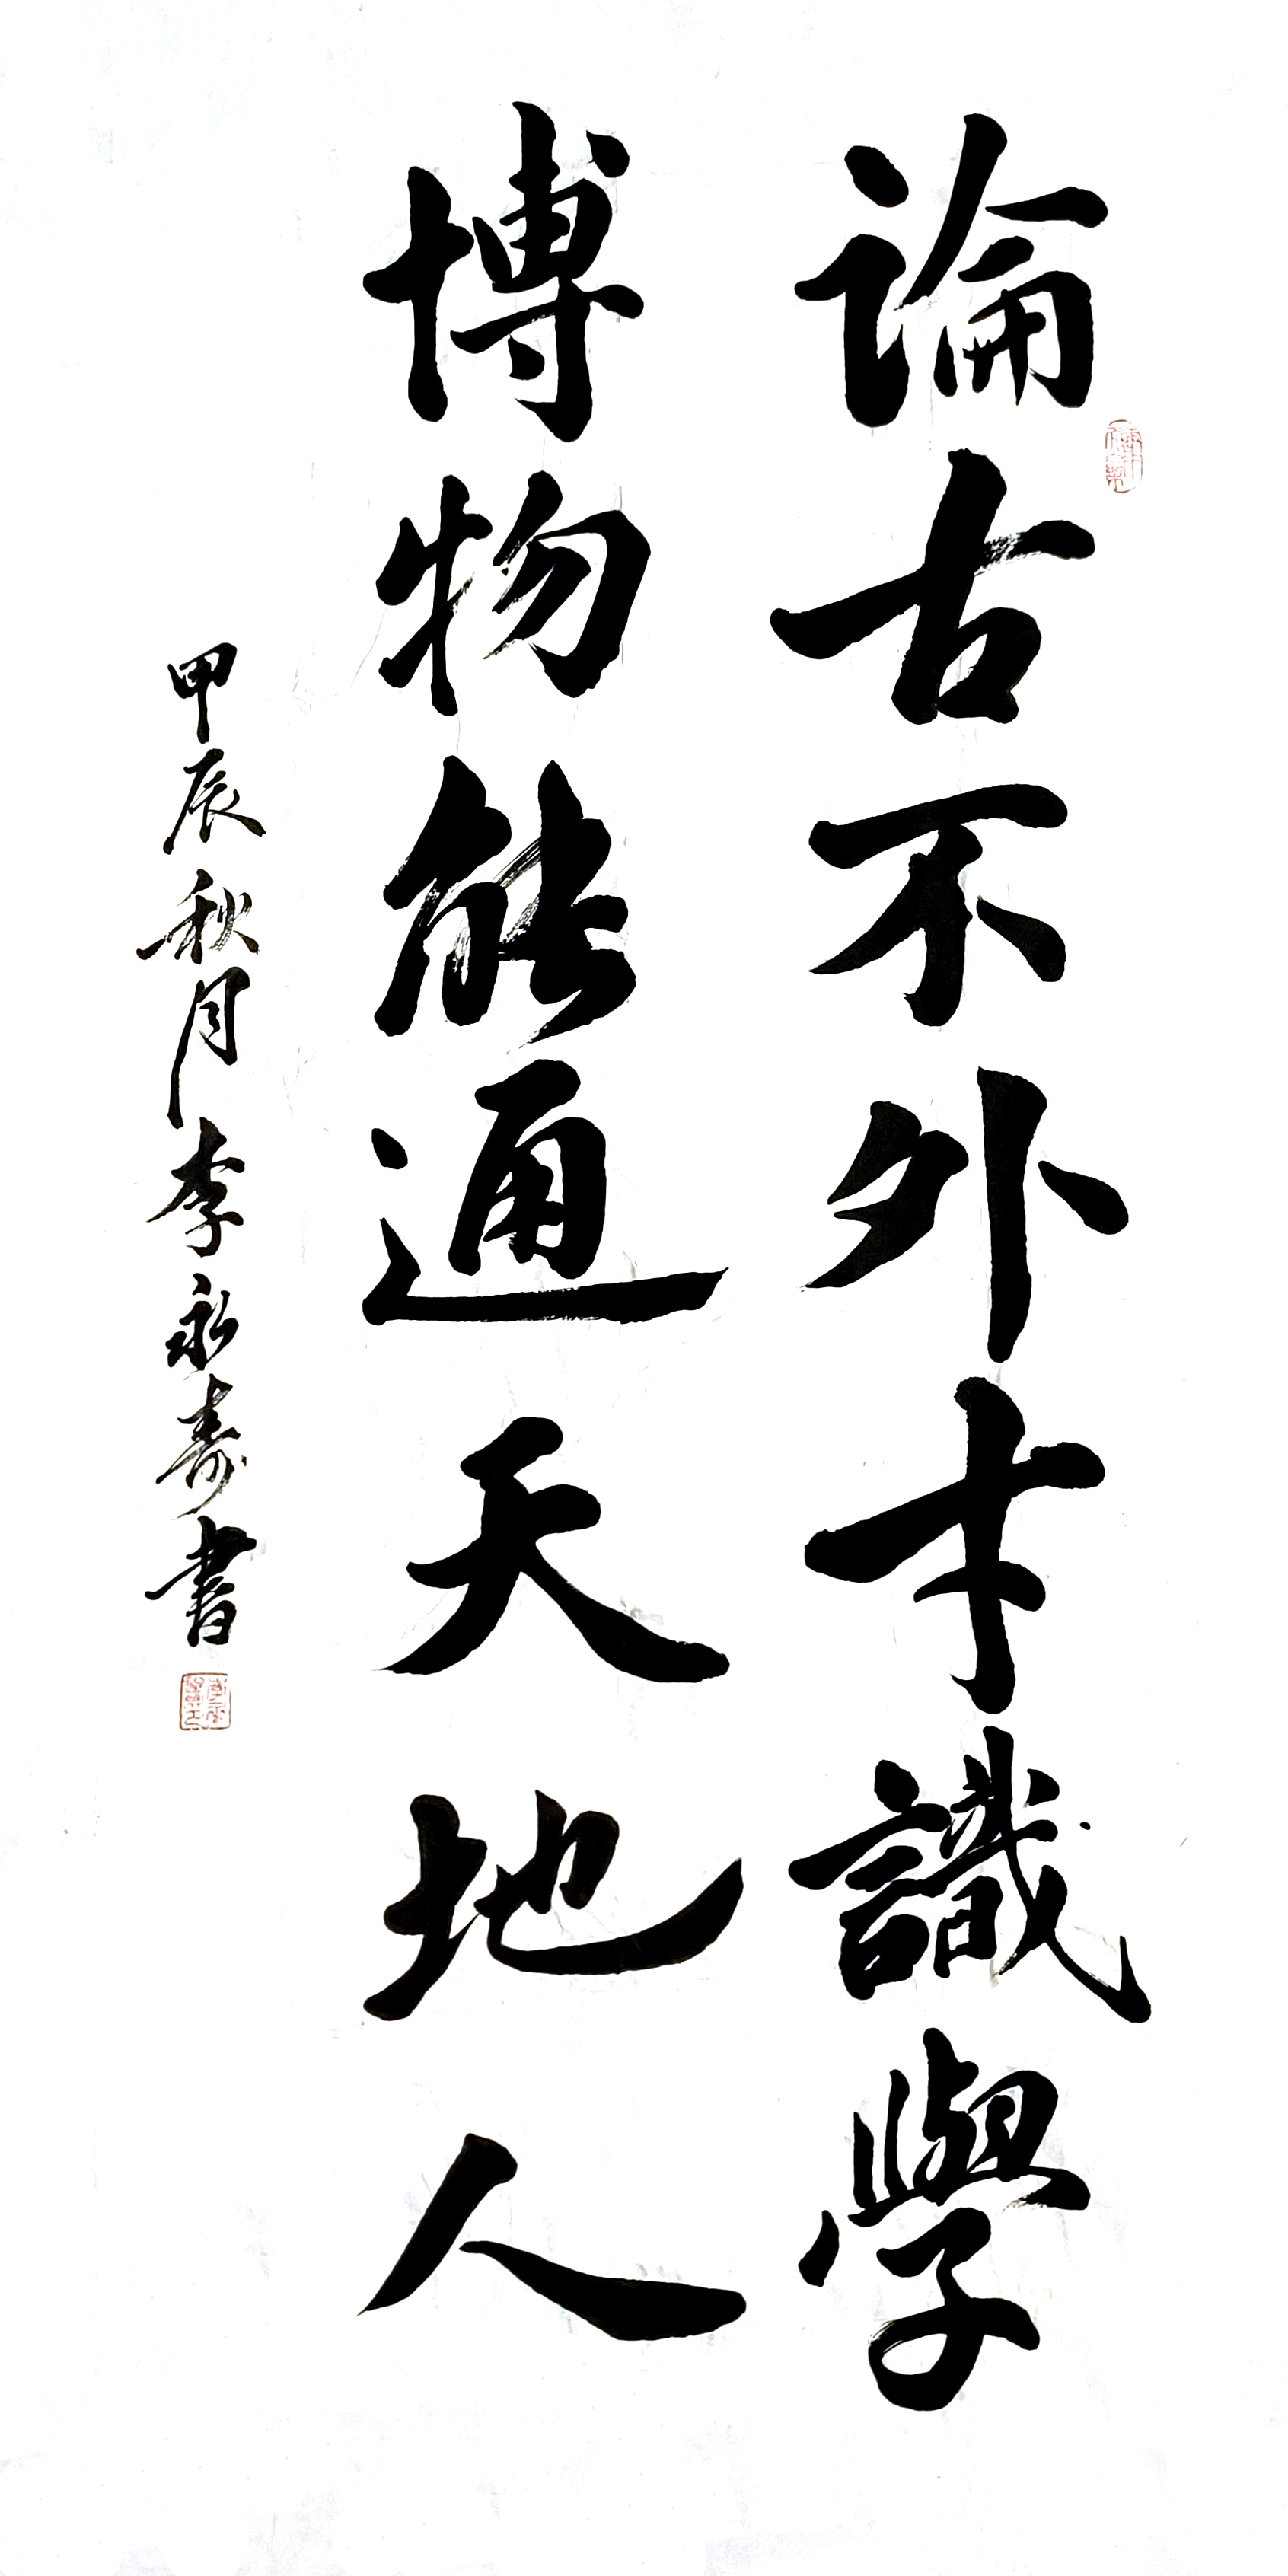 論古不外才識學
博物能通天地人
甲辰秋月李永壽書